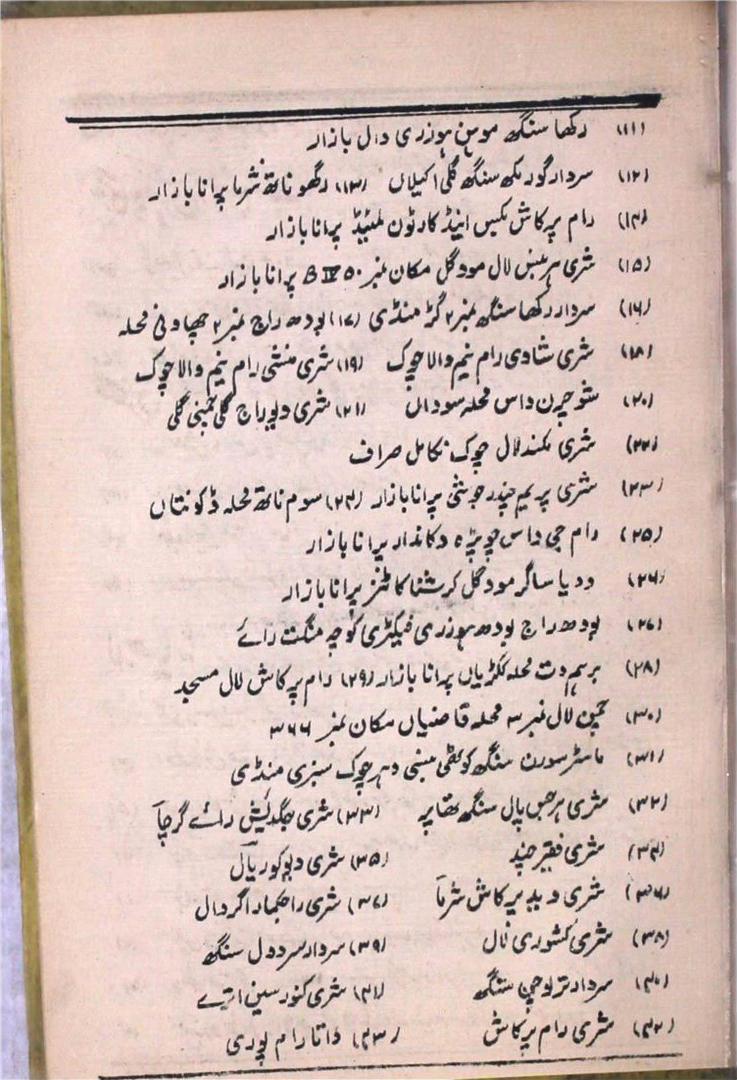 (۱۱) رکھا سنگھ موہن ہوزری دال بازار
(۱۲) سردار گورمکھ سنگھ گلی اکیلاں (۱۳) رگھو ناتھ شرما پرانا بازار
(۱۴) رام پرکاش بکس اینڈ کارٹون لمٹیڈ پرانا بازار
(۱۵) شری ہربنس لال مودگل مکان نمبر ۵۰ B IV پرانا بازار
(۱۶) سردار رکھا سنگھ نمبر ۲ گڑ منڈی (۱۷) بودھ راج نمبر ۲ چھاونی محلہ
(۱۸) شری شادی رام نیم والا چوک (۱۹) شری منشی رام نیم والا چوک
(۲۰) شو چرن داس محلہ سوداں (۲۱) شری دیوراج گلی کمپنی گلی
(۲۲) شری مکند لال چوک نکامل صراف
(۲۳) شری پریم چندر جوشی پرانا بازار (۲۴) سوم ناتھ محلہ ڈکونتاں
(۲۵) رام جی داس چوپڑہ دکاندار پرانا بازار
(۲۶) ودیا ساگر مودگل کرشنا کاٹنز پرانا بازار
(۲۷) بودھ راج بودھ ہوزری فیکٹری کوچہ منگت رائے
(۲۸) برہم دت محلہ لکڑیاں پرانا بازار (۲۹) رام پرکاش لال مسجد
(۳۰) چمن لال نمبر ۳ محلہ قاضیاں مکان نمبر ۳۶۶
(۳۱) ماسٹر سورن سنگھ کوٹھی مبنی دہر چوک سبزی منڈی
(۳۲) شری ہرجس پال سنگھ تھاپر (۳۳) شری جگدیش رائے گرچا
(۳۴) شری فقیر چند (۳۵) شری دیو کوریال
(۳۶) شری وید پرکاش شرما (۳۷) شری راجکمار اگروال
(۳۸) شری کشوری لال (۳۹) سردار سردول سنگھ
(۴۰) سردار ترلوچن سنگھ (۴۱) شری کنور سین اترے
(۴۲) شری رام پرکاش (۴۳) داتا رام پوری